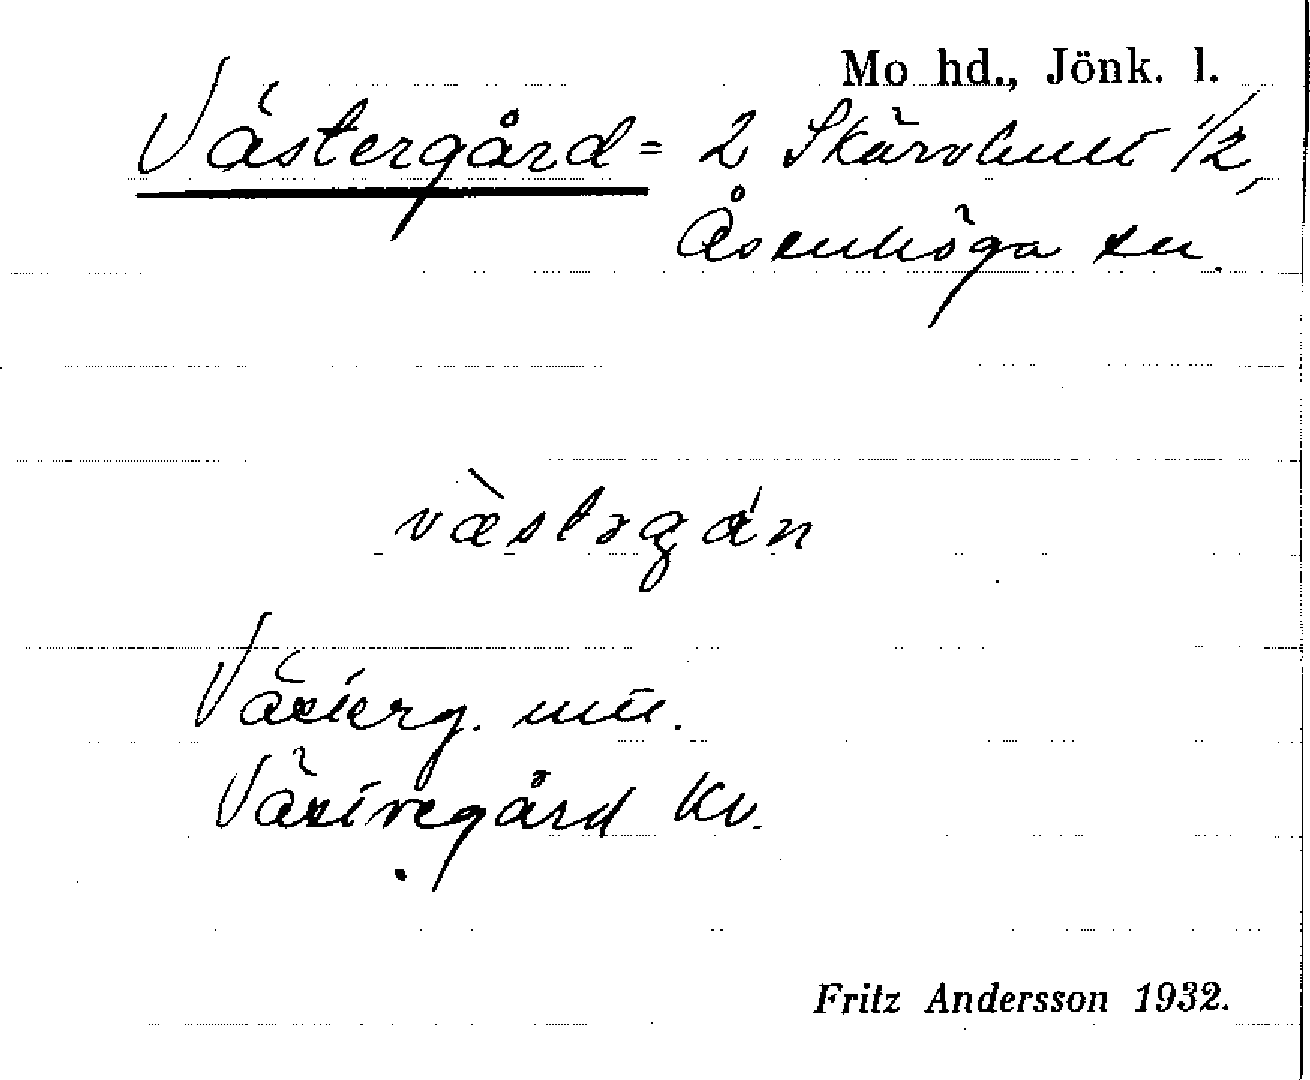 Mo hd., Jönk. l.
Västergård = 2 Skärvhult 1/2,
Åsenhöga sn.
væ̀stəgán
Västerg. mtl.
Västregård Kv.
Fritz Andersson 1932.